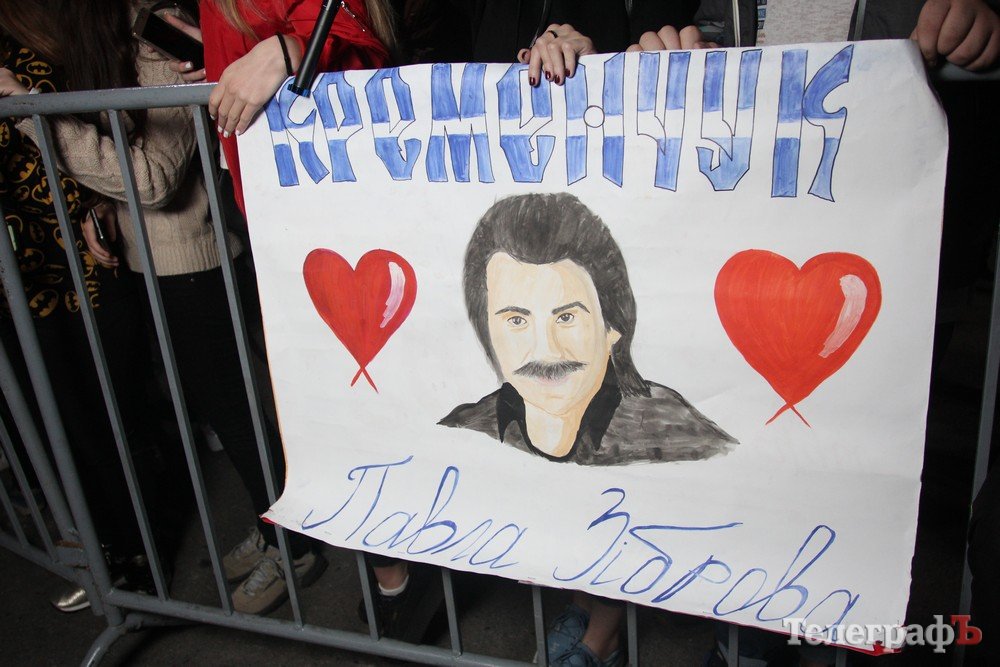 КРЕМЕНЧУК
Павла Зіброва
ТелеграфЪ